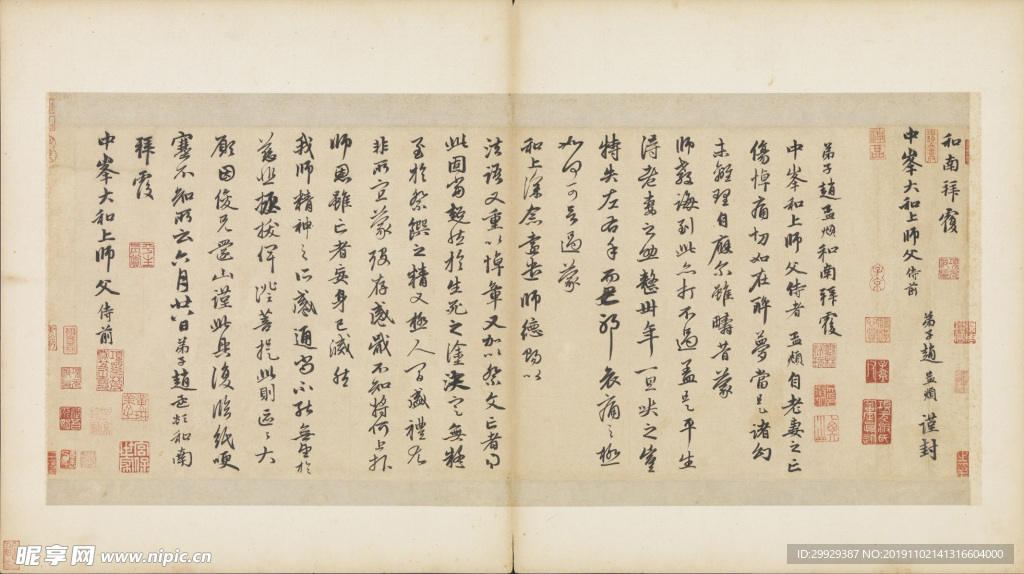 和南拜覆
弟子趙孟頫謹封
中峯大和上師父侍前
弟子趙孟頫和南拜覆
中峯和上師父侍者孟頫自老妻之亡
傷悼痛切如在醉夢當是諸幻
未離理自應尔雖疇昔蒙
師教誨到此亦打不過蓋是平生
得老妻之助整卅年一旦失之豈
特失左右手而已耶哀痛之極
如何可言過蒙
和上深念遠遣師德賜以
法語又重以悼章又加以祭文亡者得
此固當超然於生死之塗決定無疑
至於祭饌之精又極人間盛禮尤
非所宜蒙殁存感戴不知將何上報
師恩雖亡者妄身已滅然
我師精神之所感通尚不能無望於
慈悲拯拔俾證菩提此則區〻大
願因俊兄還山謹此具復臨紙哽
塞不知所云六月廿八日弟子趙孟頫和南
拜覆
中峯大和上師父侍前
昵享网 www.nipic.cn
ID:29929387 NO:20191102141316604000